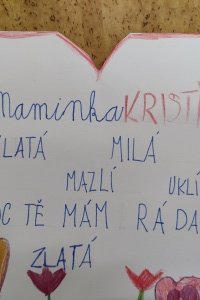 Maminka KRIST
ZLATÁ MILÁ
MAZLÍ UKLÍ
OC TĚ MÁM RÁDA
ZLATÁ